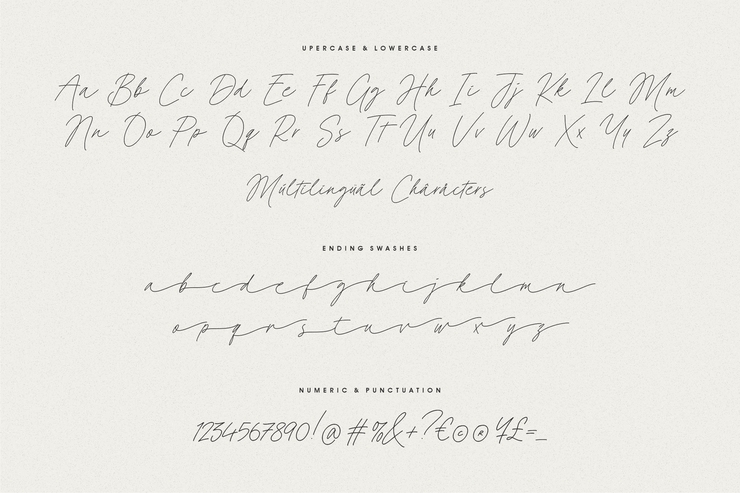 UPERCASE & LOWERCASE
Aa Bb Cc Dd Ee Ff Gg Hh Ii Jj Kk Ll Mm
Nn Oo Pp Qq Rr Ss Tt Uu Vv Ww Xx Yy Zz
Múltilingùäl Chârâcters
ENDING SWASHES
a b c d e f g h i j k l m n
o p q r s t u v w x y z
NUMERIC & PUNCTUATION
1234567890!@#%&+?€©®¥£=_